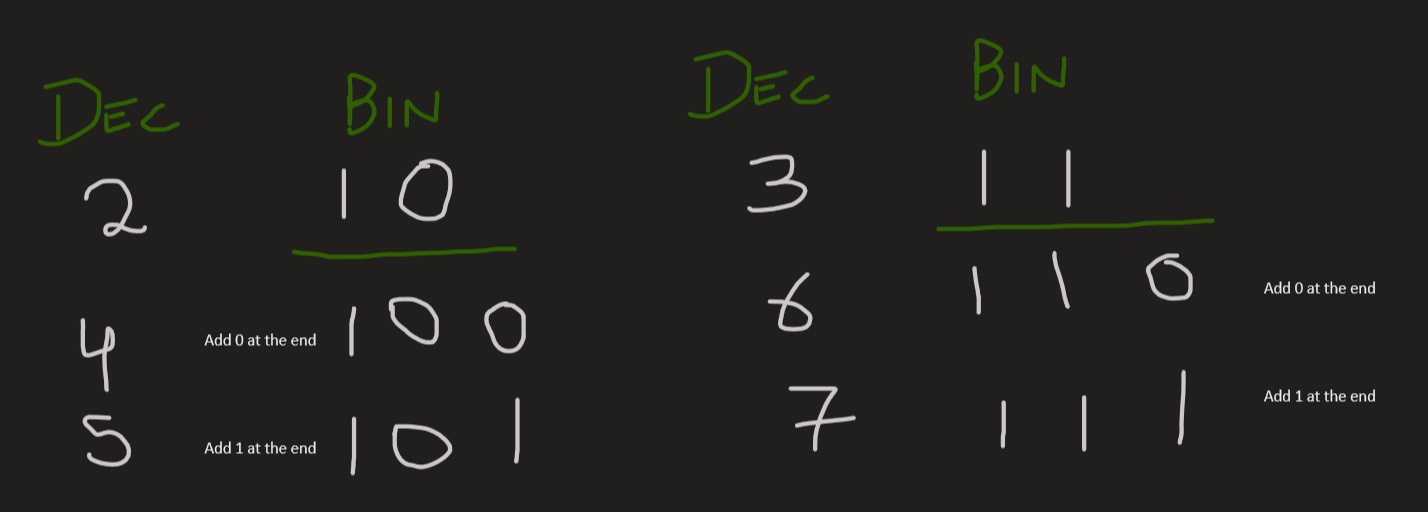 DEC BIN
2 10
4 Add 0 at the end 100
5 Add 1 at the end 101
DEC BIN
3 11
6 110 Add 0 at the end
7 111 Add 1 at the end